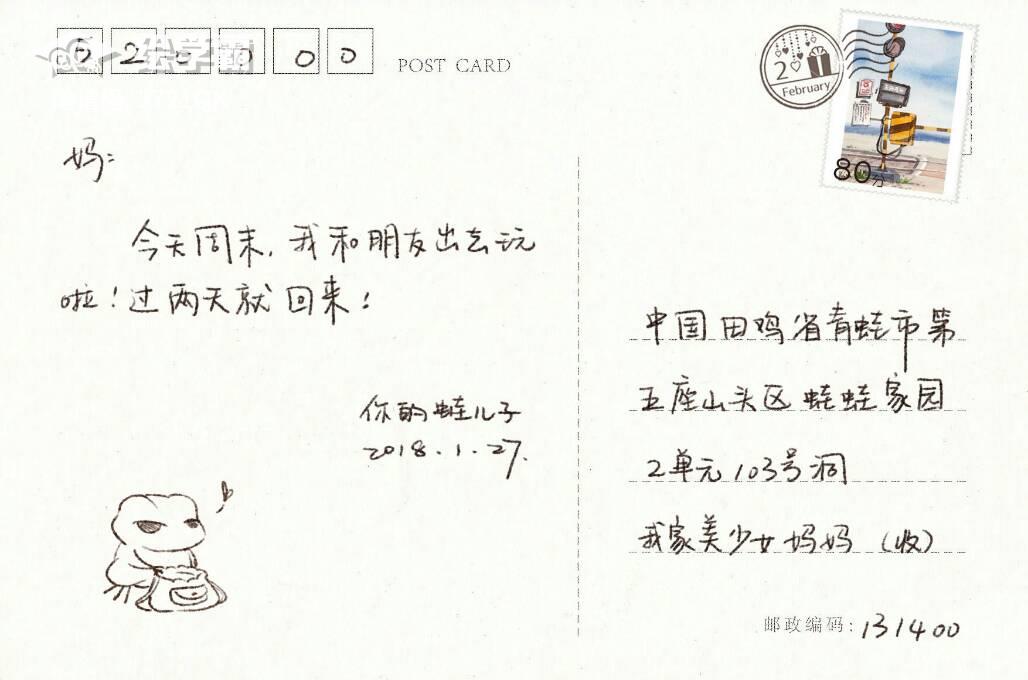 绘学霸
0 2 0 0 0 0
POST CARD
2
February
80分
妈:
今天周末,我和朋友出去玩
啦!过两天就回来!
你的蛙儿子
2018.1.27.
中国田鸡省青蛙市第
五座山头区蛙蛙家园
2单元103号洞
我家美少女妈妈(收)
邮政编码:131400